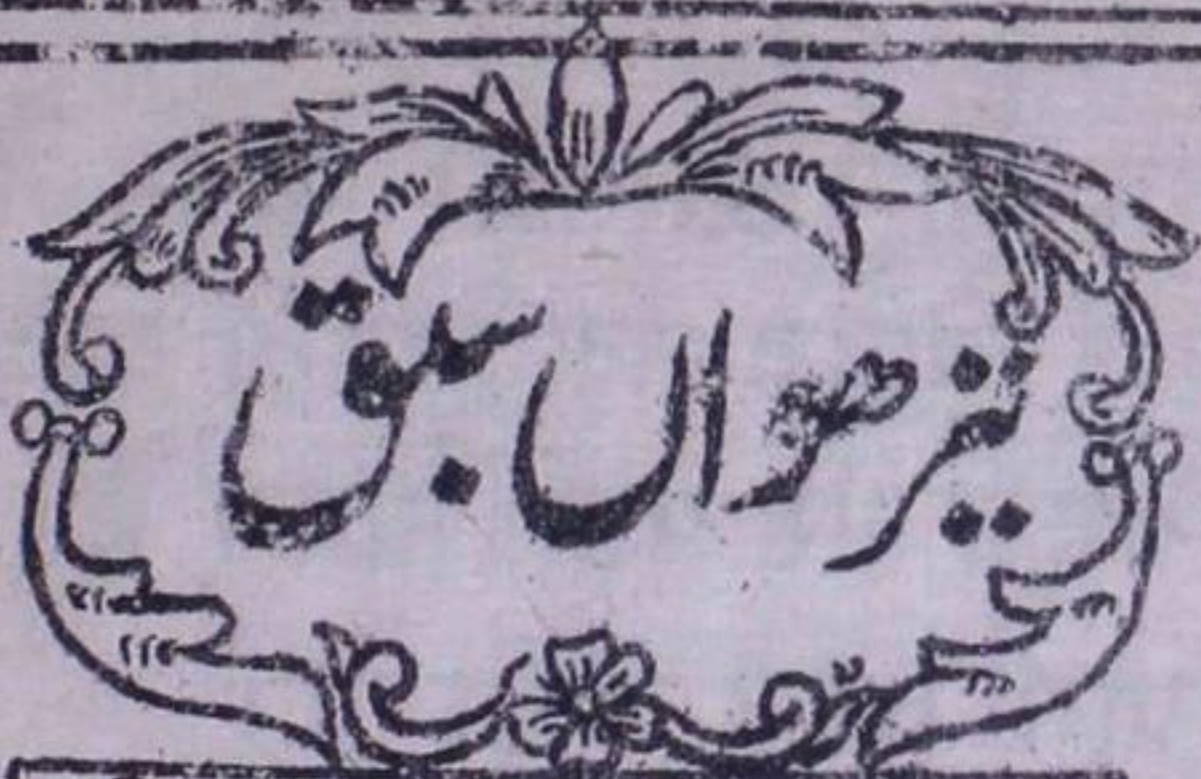 تیرھواں سبق